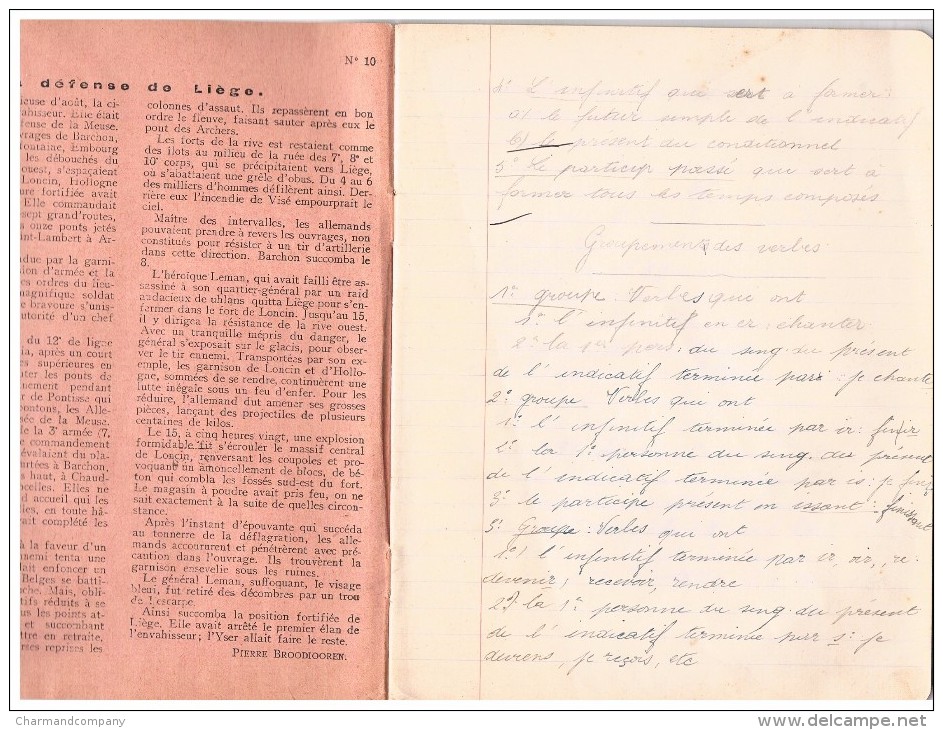 N° 10
défense de Liège.
ieuse d'août, la ci-
vahisseur. Elle était
ense de la Meuse.
vrages de Barchon,
fontaine, Embourg
les débouchés du
ouest, s'espaçaient
Loncin, Hollogne
ure fortifiée avait
Elle commandait
sept grand'routes,
s onze ponts jetés
int-Lambert à Ar-
due par la garni-
ion d'armée et la
es ordres du lieu-
magnifique soldat
e bravoure s'unis-
utorité d'un chef
du 12e de ligne
ia, après un court
es supérieures en
ter les ponts de
nement pendant
r de Pontisse qui
ontons, les Alle-
née de la Meuse.
e la 3e armée (7,
e commandement
évalaient du pla-
urtées à Barchon,
t, à Chaud-
ncelles. Elles ne
d accueil qui les
s, en toute hâ-
ait complété les
à la faveur d'un
nemi tenta une
lait enfoncer un
Belges se batti-
che. Mais, obli-
tifs réduits à se
s les points at-
et succombant
ttre en retraite,
rses reprises les
colonnes d'assaut. Ils repassèrent en bon
ordre le fleuve, faisant sauter après eux le
pont des Archers.
Les forts de la rive est restaient comme
des îlots au milieu de la ruée des 7e, 8e et
10e corps, qui se précipitaient vers Liège,
où s'abattaient une grêle d'obus. Du 4 au 6
des milliers d'hommes défilèrent ainsi. Der-
rière eux l'incendie de Visé empourprait le
ciel.
Maître des intervalles, les allemands
pouvaient prendre à revers les ouvrages, non
constitués pour résister à un tir d'artillerie
dans cette direction. Barchon succomba le
8.
L'héroïque Leman, qui avait failli être as-
sassiné à son quartier-général par un raid
audacieux de uhlans quitta Liège pour s'en-
fermer dans le fort de Loncin. Jusqu'au 15,
il y dirigea la résistance de la rive ouest.
Avec un tranquille mépris du danger, le
général s'exposait sur le glacis, pour obser-
ver le tir ennemi. Transportées par son ex-
emple, les garnison de Loncin et d'Hollo-
gne, sommées de se rendre, continuèrent une
lutte inégale sous un feu d'enfer. Pour les
réduire, l'allemand dut amener ses grosses
pièces, lançant des projectiles de plusieurs
centaines de kilos.
Le 15, à cinq heures vingt, une explosion
formidable fit s'écrouler le massif central
de Loncin, renversant les coupoles et pro-
voquant un amoncellement de blocs, de bé-
ton qui combla les fossés sud-est du fort.
Le magasin à poudre avait pris feu, on ne
sait exactement à la suite de quelles circon-
stance.
Après l'instant d'épouvante qui succéda
au tonnerre de la déflagration, les alle-
mands accoururent et pénétrèrent avec pré-
caution dans l'ouvrage. Ils trouvèrent la
garnison ensevelie sous les ruines.
Le général Leman, suffoquant, le visage
bleui, fut retiré des décombres par un trou
de l'escarpe.
Ainsi succomba la position fortifiée de
Liège. Elle avait arrêté le premier élan de
l'envahisseur; l'Yser allait faire le reste.
PIERRE BROODIOOREN.
4° L'infinitif que sert à former:
a) le futur simple de l'indicatif
b) le présent du conditionnel
5° Le particip passé que sert a
former tous les temps composés
Groupement des verbes
1er groupe: Verbes que ont
1° l'infinitif en er: chanter
2° la 1re pers: du sing. du présent
de l'indicatif terminée par: je chante
2° groupe Verbes qui ont
1° l'infinitif terminée par ir: finir
2° la 1° personne du sing. du présent
de l'indicatif terminée par is: je finis
3° le participe présent en issant: finissant
3° Groupe: Verbes qui ont
1° l'infinitif terminée par ir, oir, re.
devenir, recevoir, rendre
2° la 1° personne du sing. du présent
de l'indicatif terminée par s: je
deviens, je reçois, etc
Charmandcompany
www.delcampe.net